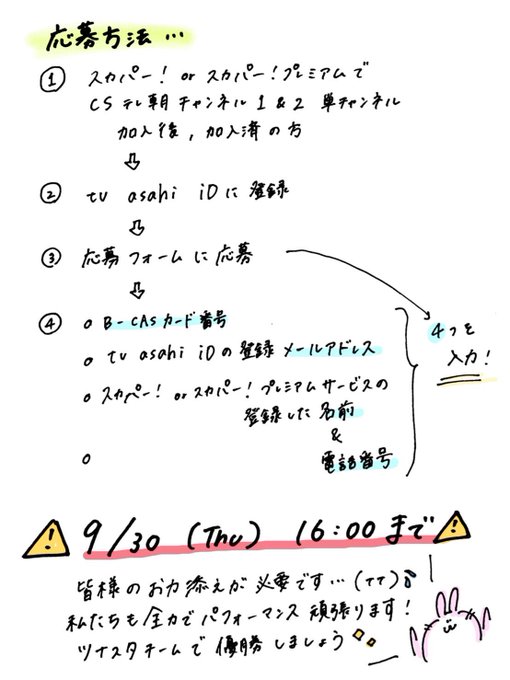 応募方法…
① スカパー! or スカパー!プレミアムで
CSテレ朝チャンネル1&2 単チャンネル
加入後,加入済の方
⇩
② tv asahi iDに登録
⇩
③ 応募フォームに応募
⇩
④ o B-CASカード番号
o tv asahi iDの登録メールアドレス
o スカパー! or スカパー!プレミアムサービスの
登録した名前
&
o 電話番号
4つを
入力!
9/30 (Thu) 16:00まで
皆様のお力添えが必要です…(TT)
私たちも全力でパフォーマンス頑張ります!
ツナスタチームで優勝しましょう